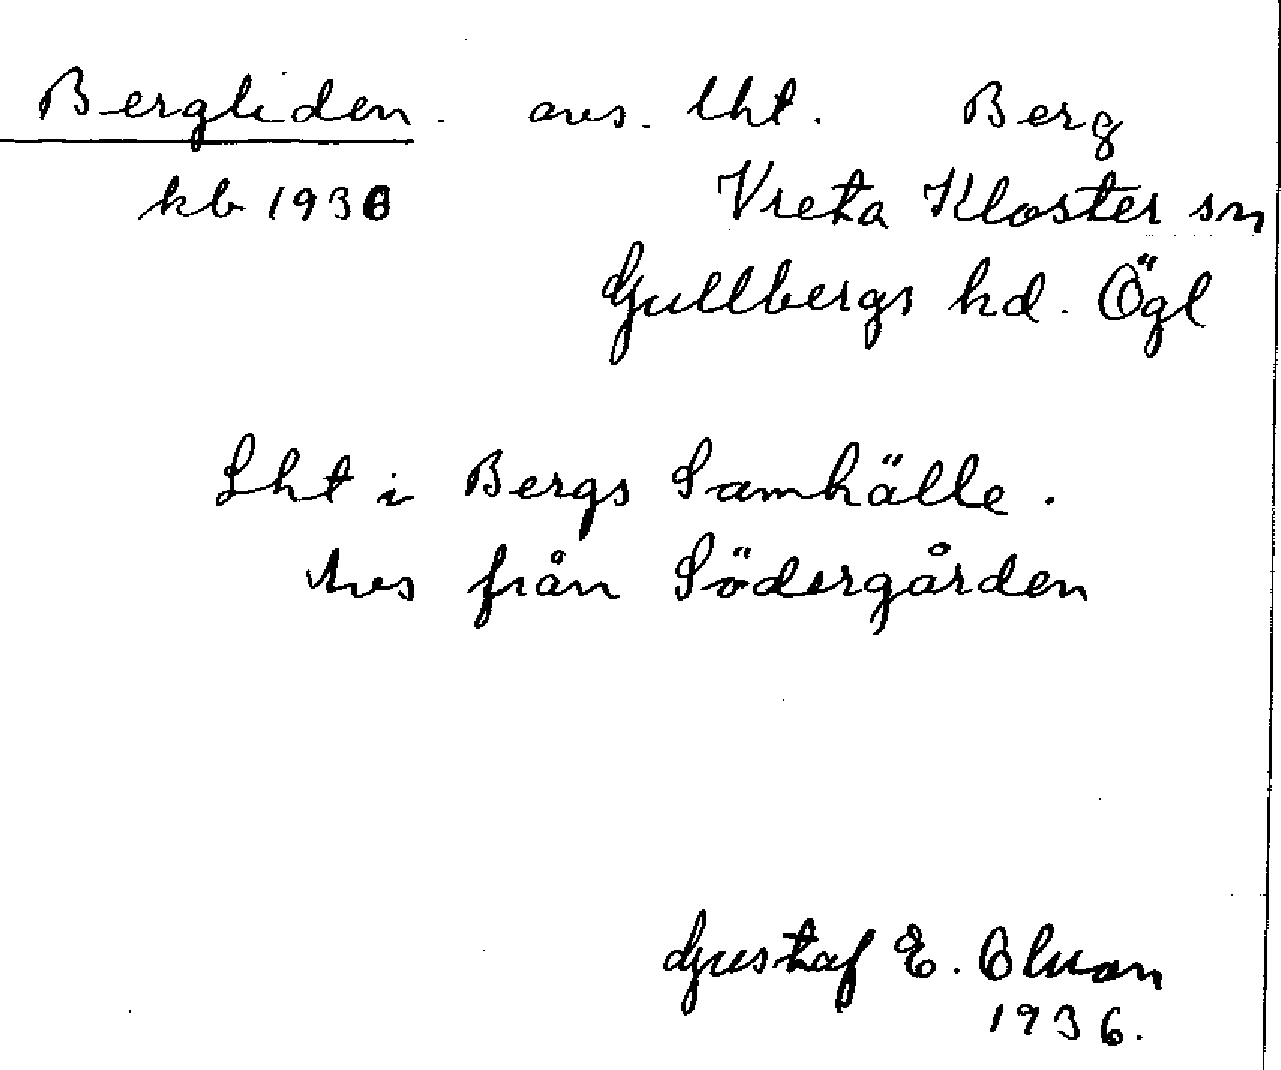 Bergliden. avs. lht. Berg
kb 1930 Vreta Kloster sn
Gullbergs hd. Ögl
Lht i Bergs Samhälle.
Avs från Södergården
Gustaf E. Olsson
1936.